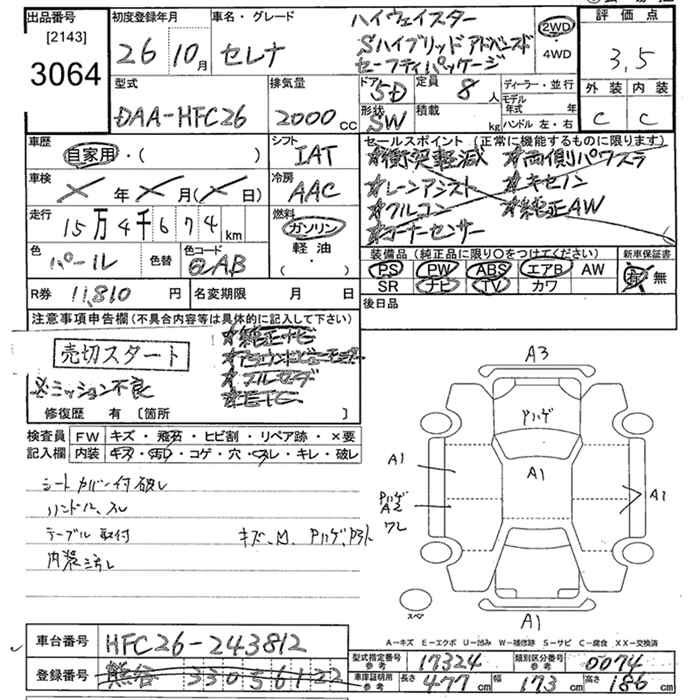 出品番号
[2143]
3064
初度登録年月
26 10月
車名・グレード
セレナ
ハイウェイスター
Sハイブリッド アドバンスド
セーフティパッケージ
2WD
4WD
評価点
3,5
外装 内装
C C
型式
DAA-HFC26
排気量
2000 CC
ドア 5D
形状 SW
定員 8人
積載 kg
ディーラー・並行
モデル年式 年
ハンドル 左・右
車歴
自家用・( )
シフト
IAT
セールスポイント (正常に機能するものに限ります)
☆衝突軽減 ☆両側パワスラ
☆レーンアシスト ☆キセノン
☆フルコン ☆純正AW
☆コーナーセンサー
車検
年 月( 日)
冷房
AAC
走行
15万4千674km
燃料
ガソリン
軽油・
( )
色
パール
色替
色コード
QAB
装備品 (純正品に限り○をつけてください)
PS PW ABS エアB AW
SR ナビ TV カワ
新車保証書
有 無
R券 11,810円
名変期限 月 日
後日品
注意事項申告欄 (不具合内容等は具体的に記入して下さい)
売切スタート
※ミッション不良
☆純正ナビ
☆アラウンドビューモニター
☆フルセグ
☆ETC
修復歴 有 [箇所 ]
検査員 FW キズ・飛石・ヒビ割・リペア跡・×要
記入欄 内装 キズ・汚レ・コゲ・穴・スレ・キレ・破レ
シートカバー付 破レ
ハンドル スレ
テーブル取付
キズ、M、Pハゲ、Pタト
内装汚レ
A3
Pハゲ
A1
A1
Pハゲ
A2
ワレ
A1
スペア
A1
A-キズ E-エクボ U-凹み W-補修跡 S-サビ C-腐食 XX-交換済
車台番号 HFC26-243812
登録番号 熊谷 330 す 6122
型式指定番号 参考 17324
類別区分番号 参考 0074
車庫証明用 参考 長さ 477cm 幅 173cm 高さ 186cm